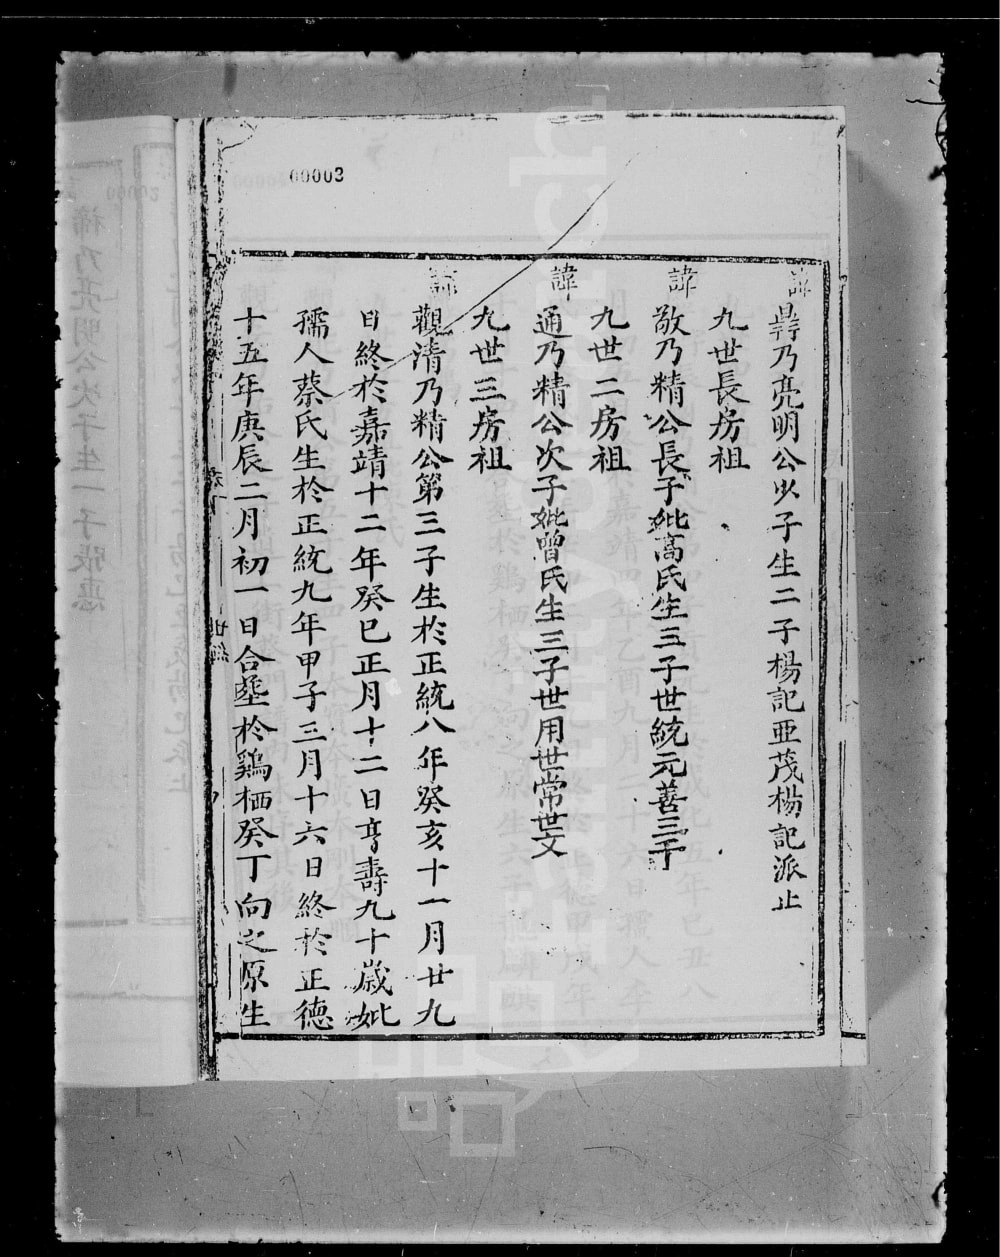 00003
諱
鼎乃亮明公次子生二子楊記亞茂楊記派止
九世長房祖
諱
敬乃精公長子妣高氏生三子世統元善三于
九世二房祖
諱
通乃精公次子妣曾氏生三子世用世常世文
九世三房祖
諱
觀清乃精公第三子生於正統八年癸亥十一月廿九
日終於嘉靖十二年癸巳正月十二日亨壽九十歲妣
孺人蔡氏生於正統九年甲子三月十六日終於正德
十五年庚辰二月初一日合塟於鷄栖癸丁向之原生